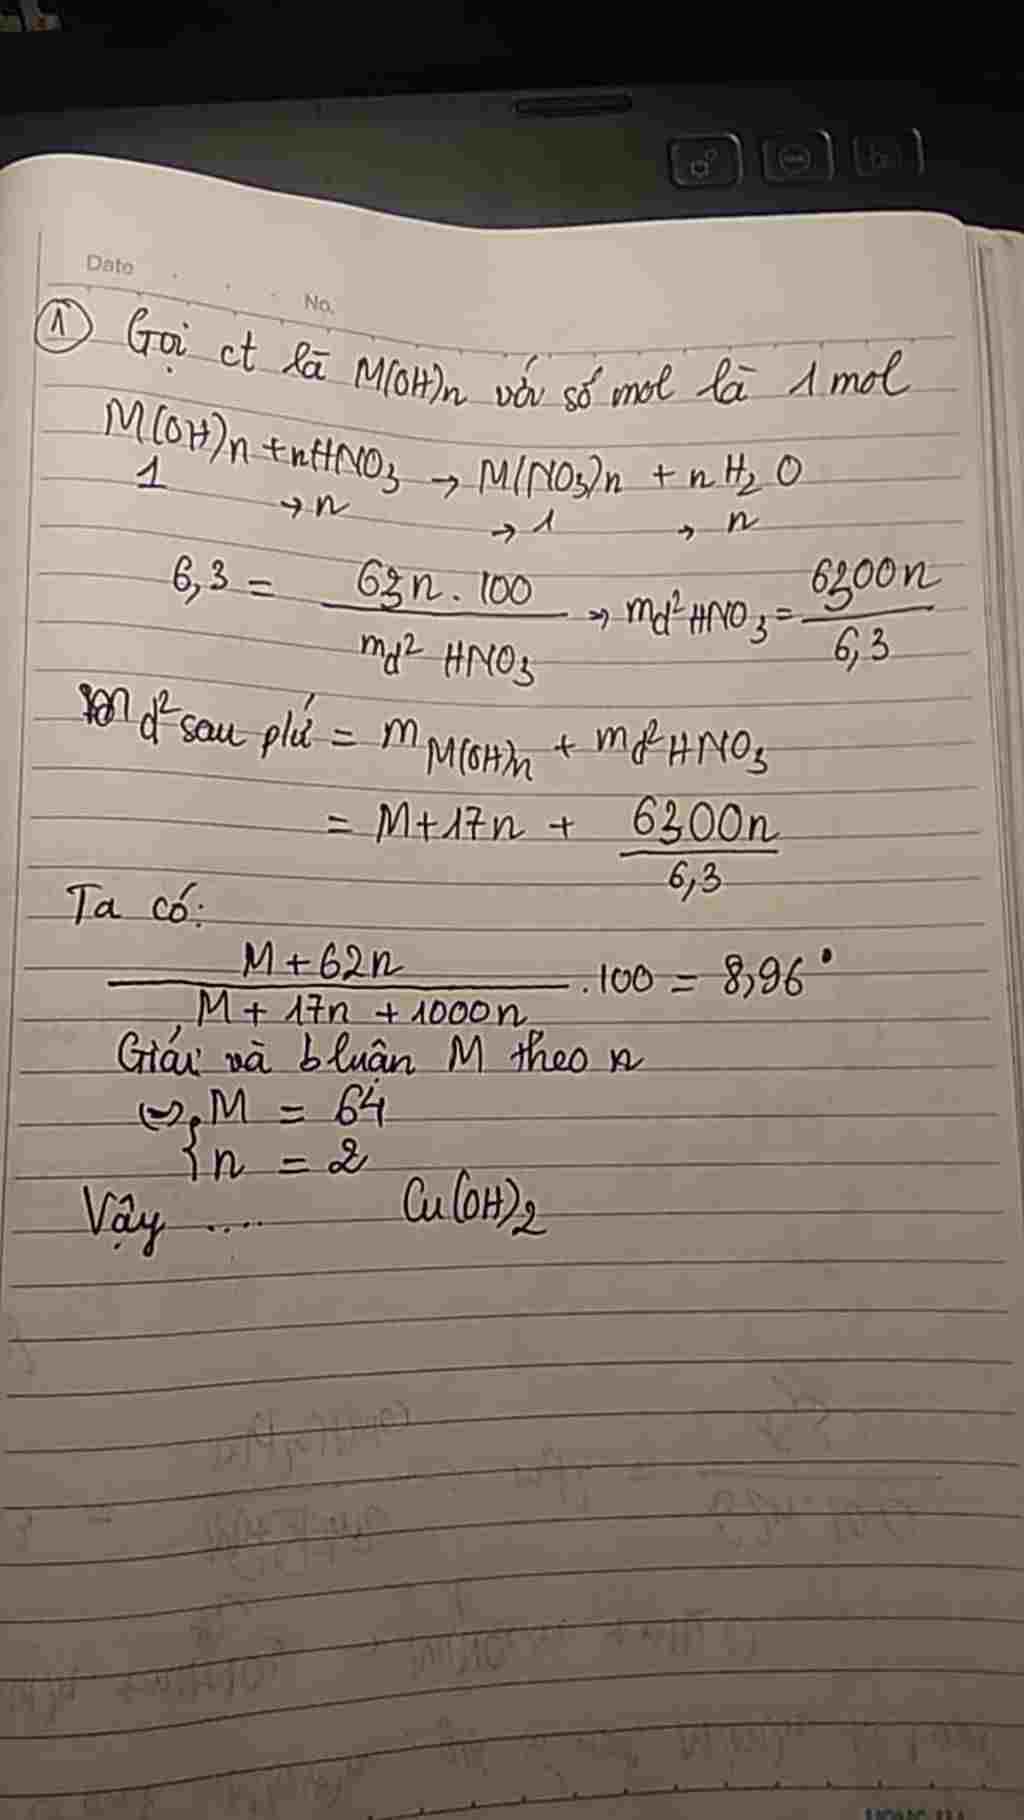 Date
No.
① Gọi ct là M(OH)n với số mol là 1 mol
M(OH)n + nHNO3 → M(NO3)n + nH2O
1 → n → 1 → n
6,3 = 63n . 100 / md² HNO3 → md² HNO3 = 6300n / 6,3
m d² sau pứ = m M(OH)n + md² HNO3
= M + 17n + 6300n / 6,3
Ta có:
M + 62n / M + 17n + 1000n . 100 = 8,96
Giải và b luận M theo n
(=) { M = 64
n = 2
Vậy .... Cu(OH)2